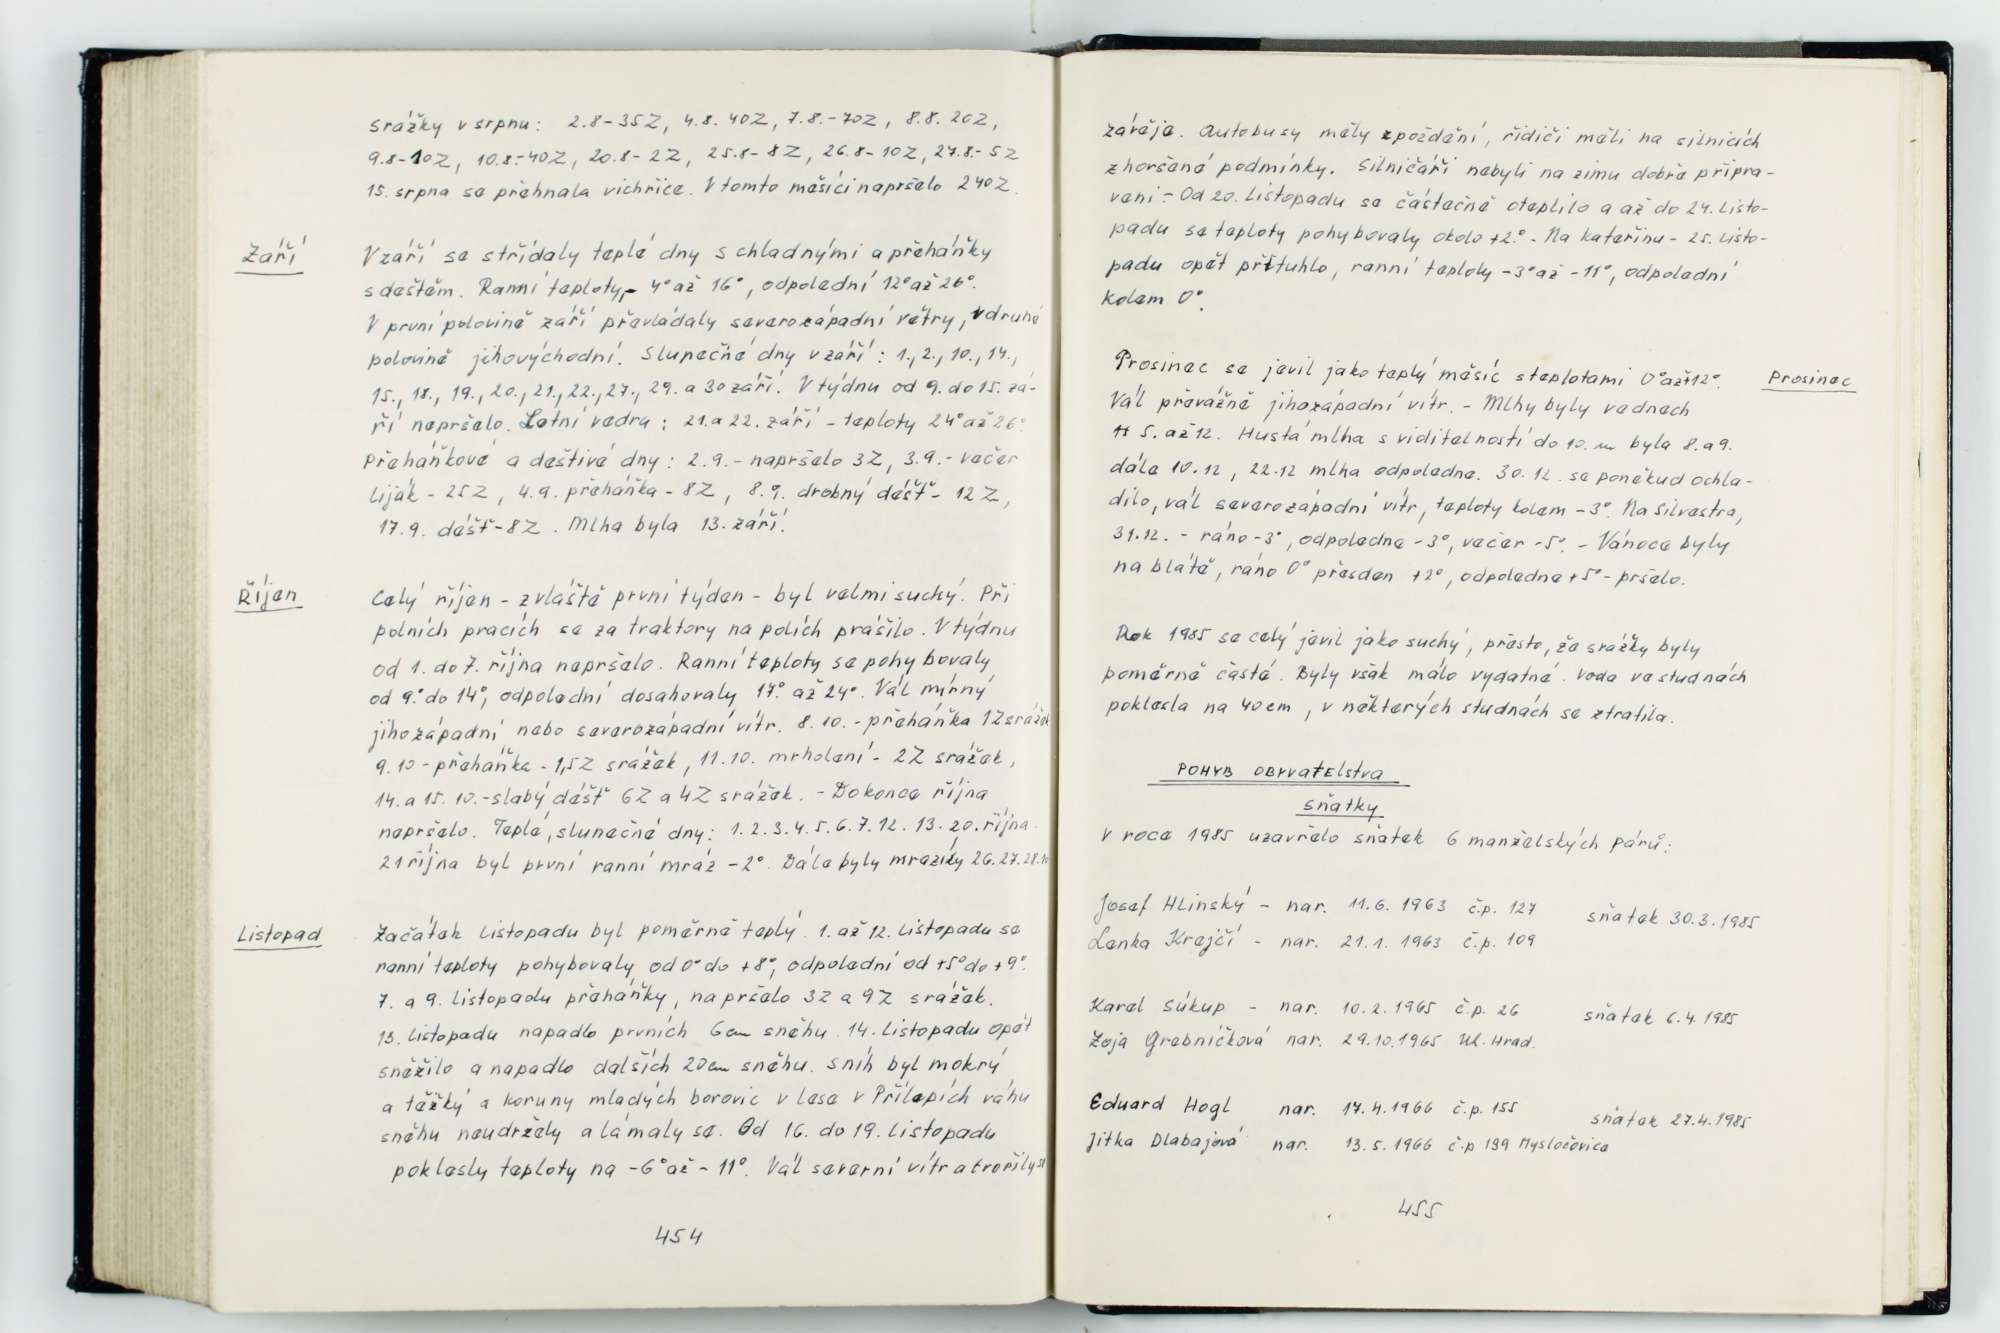 srážky v srpnu: 2.8-35Z, 4.8. 40Z, 7.8.-70Z, 8.8. 20Z,
9.8-10Z, 10.8.-40Z, 20.8-2Z, 25.8-8Z, 26.8-10Z, 27.8.-5Z
15. srpna se přehnala vichřice. V tomto měsíci napršelo 240Z.
Září
V září se střídaly teplé dny s chladnými a přeháňky
s deštěm. Ranní teploty - 4° až 16°, odpolední 12° až 26°.
V první polovině září převládaly severozápadní větry, v druhé
polovině jihovýchodní. Slunečné dny v září: 1., 2., 10., 14.,
15., 18., 19., 20., 21., 22., 27., 29. a 30 září. V týdnu od 9. do 15. zá-
ří nepršelo. Letní vedra: 21. a 22. září - teploty 24° až 26°.
Přeháňkové a deštivé dny: 2.9.- napršelo 3Z, 3.9.- večer
liják - 25Z, 4.9. přeháňka - 8Z, 8.9. drobný déšť - 12Z,
17.9. déšť - 8Z. Mlha byla 13. září.
Říjen
Celý říjen - zvláště první týden - byl velmi suchý. Při
polních pracích se za traktory na polích prášilo. V týdnu
od 1. do 7. října nepršelo. Ranní teploty se pohybovaly
od 9.° do 14°, odpolední dosahovaly 17.° až 24°. Vál mírný
jihozápadní nebo severozápadní vítr. 8. 10. - přeháňka 1Z srážek
9. 10 - přeháňka - 1,5Z srážek, 11. 10. mrholení - 2Z srážek,
14. a 15. 10. - slabý déšť 6Z a 4Z srážek. - Do konce října
nepršelo. Teplé, slunečné dny: 1. 2. 3. 4. 5. 6. 7. 12. 13. 20. října.
21 října byl první ranní mráz -2°. Dále byly mrazíky 26. 27. 28. 10
Listopad
Začátek listopadu byl poměrně teplý. 1. až 12. listopadu se
ranní teploty pohybovaly od 0° do +8°, odpolední od +5° do +9°.
7. a 9. listopadu přeháňky, napršelo 3Z a 9Z srážek.
13. listopadu napadlo prvních 6 cm sněhu. 14. listopadu opět
sněžilo a napadlo dalších 20 cm sněhu. Sníh byl mokrý
a těžký a koruny mladých borovic v lese v Přílepích váhu
sněhu neudržely a lámaly se. Od 16. do 19. listopadu
poklesly teploty na -6° až -11°. Vál severní vítr a tvořily se
454
závěje. Autobusy měly zpoždění, řidiči měli na silnicích
zhoršené podmínky. Silničáři nebyli na zimu dobře připra-
veni - Od 20. listopadu se částečně oteplilo a až do 24. listo-
padu se teploty pohybovaly okolo +2.° - Na Kateřinu - 25. listo-
padu opět přituhlo, ranní teploty -3° až -11°, odpolední
kolem 0°.
Prosinec
Prosinec se jevil jako teplý měsíc s teplotami 0° až +12°.
Vál převážně jihozápadní vítr. - Mlhy byly ve dnech
5. až 12. Hustá mlha s viditelností do 10. m byla 8. a 9.
dále 10. 12, 22. 12 mlha odpoledne. 30. 12. se poněkud ochla-
dilo, vál severozápadní vítr, teploty kolem -3°. Na Silvestra,
31. 12. - ráno -3°, odpoledne -3°, večer -5°. - Vánoce byly
na blátě, ráno 0° přes den +2°, odpoledne +5° - pršelo.
Rok 1985 se celý jevil jako suchý, přesto, že srážky byly
poměrně časté. Byly však málo vydatné. Voda ve studnách
poklesla na 40 cm, v některých studnách se ztratila.
POHYB OBYVATELSTVA
Sňatky
V roce 1985 uzavřelo sňatek 6 manželských párů:
Josef Hlinský - nar. 11. 6. 1963 č.p. 127 sňatek 30. 3. 1985
Lenka Krejčí - nar. 21. 1. 1963 č.p. 109
Karel Súkup - nar. 10. 2. 1965 č.p. 26 sňatek 6. 4. 1985
Zoja Grebníčková nar. 29. 10. 1965 Uh. Hrad.
Eduard Hogl nar. 17. 4. 1966 č.p. 155 sňatek 27. 4. 1985
Jitka Dlabajová nar. 13. 5. 1966 č.p 139 Mysločovice
455